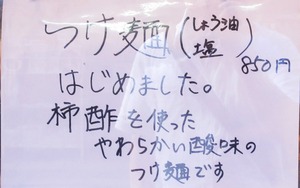 つけ麺(しょう油
塩) 850円
はじめました。
柿酢を使った
やわらかい酸味の
つけ麺です